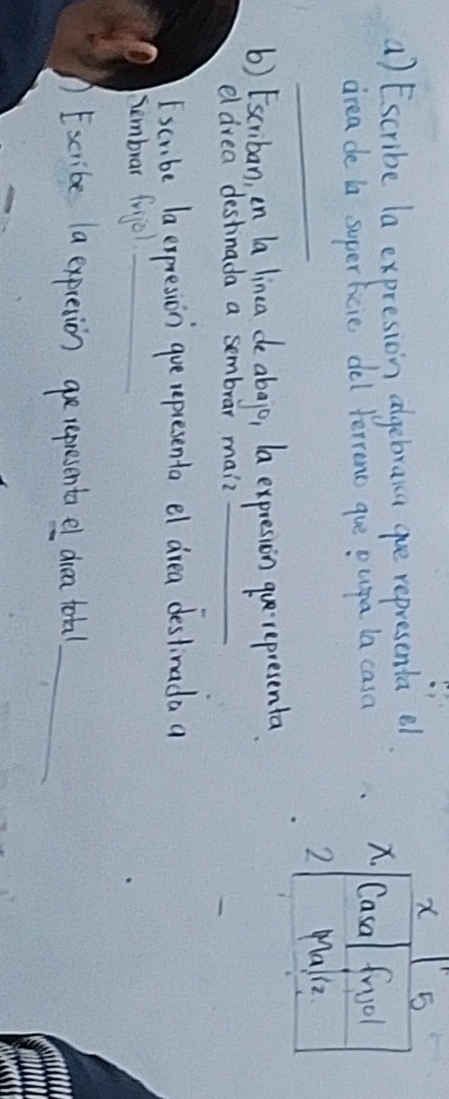 a) Escribe la expresión algebraica que representa el
área de la superficie del terreno que ocupa la casa
b) Escriban, en la línea de abajo, la expresión que representa
el área destinada a sembrar maíz
Escribe la expresión que representa el área destinada a
sembrar frijol.
) Escribe la expresión que representa el área total
x 5
x Casa frijol
2 Maíz.